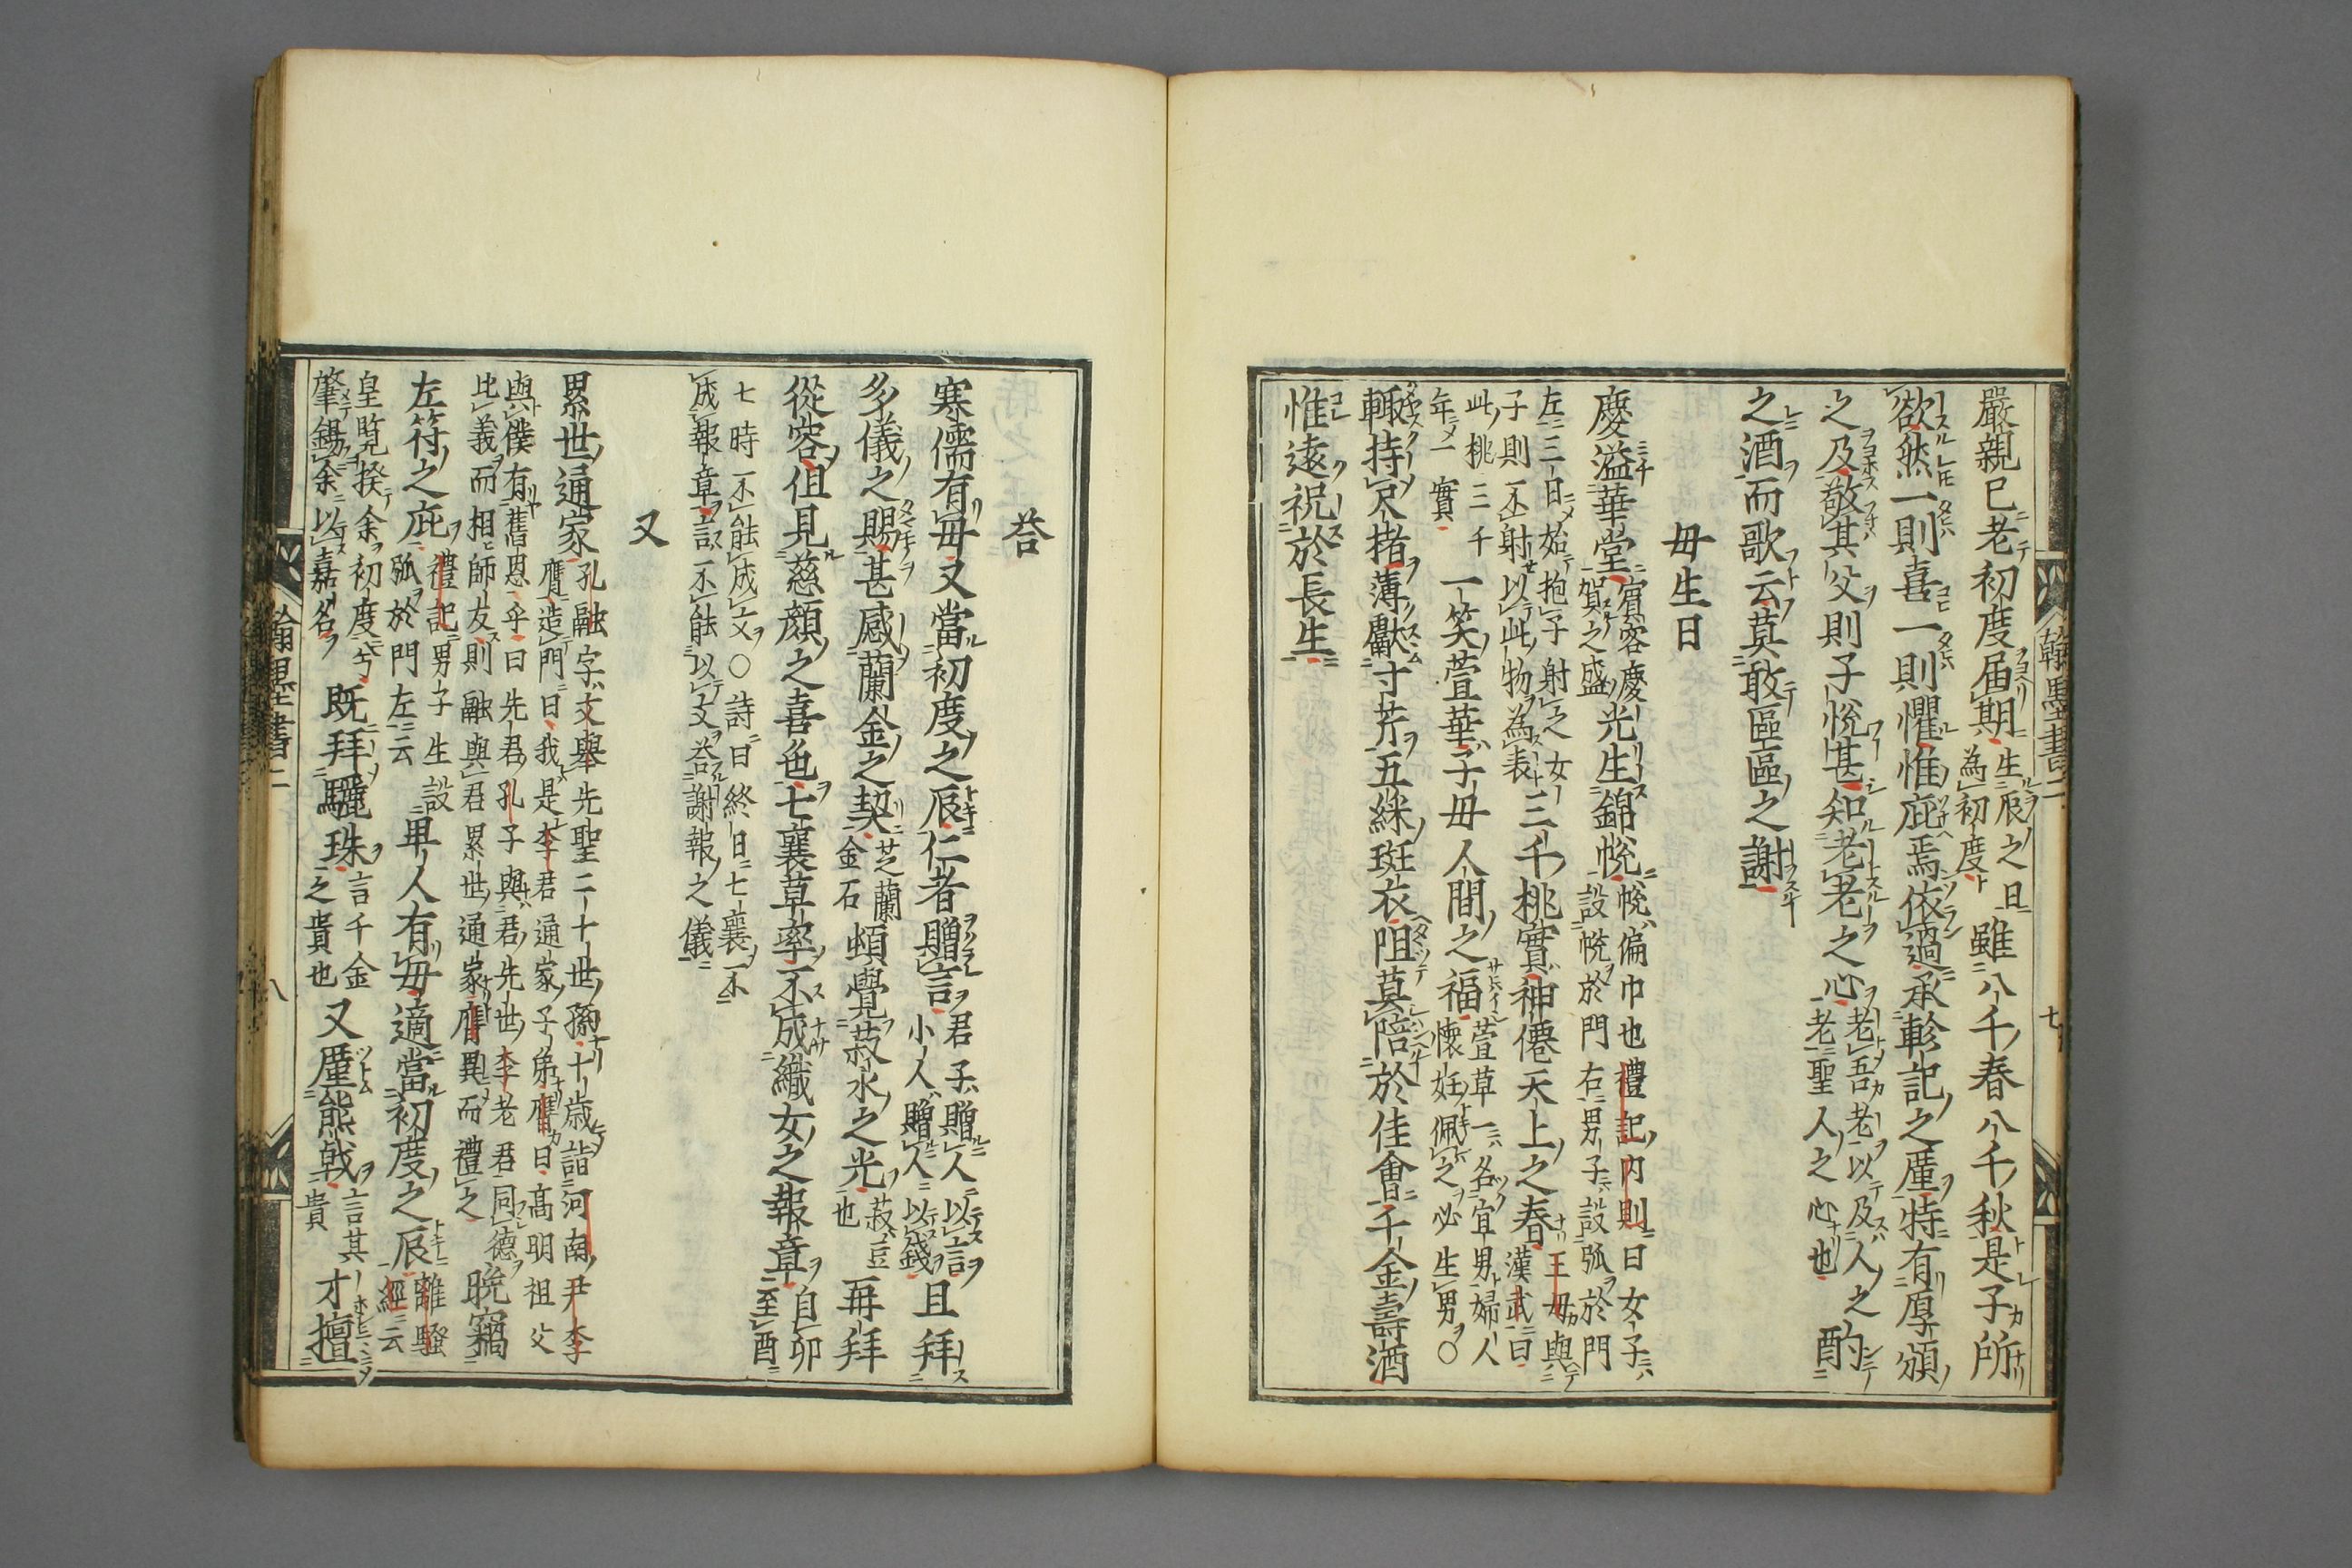 嚴親已老初度届期生辰之日為初度雖八千春八千秋是子所
欲然一則喜一則懼惟庇焉依過承軫記之厪特有厚頒
之及敬其父則子悅甚知老老之心老吾老以及人之老聖人之心也酌
之酒而歌云莫敢區區之謝
毋生日
慶溢華堂賓容慶賀之盛光生錦帨帨偏巾也禮記内則曰女子設帨於門右男子設弧於門
左三日始抱子射之女子則不射以此物為表三千桃實神僊天上之春王母與漢武曰
此桃三千年一實一笑萱華子毋人間之福萱草一名宜男婦人懷妊佩之必生男〇
輙持尺楮薄獻寸芹五綵斑衣阻莫陪於佳會千金壽酒
惟遠祝於長生
翰墨書二
七
荅
寒儒有毋又當初度之辰仁者贈言君子贈人以言小人贈人以錢且拜
多儀之賜甚感蘭金之契芝蘭金石頓覺菽水之光菽豆也再拜
從容但見慈顏之喜色七襄草率不成織女之報章自卯至酉
七時不能成文〇詩曰終日七襄不成報章言不能以文荅謝報之儀
又
累世通家孔融字文舉先聖二十世孫十歲詣河南尹李膺造門曰我是李君通家子弟膺曰高明祖父
與僕有舊恩乎曰先君孔子與君先世李老君同德比義而相師友則融與君累世通家膺異而禮之晩竊
左符之庇禮記男子生設弧於門左云卑人有毋適當初度之辰離騷經云
皇覧揆余初度兮肇錫余以嘉名既拜驪珠言千金之貴也又厪熊戟言其貴才擅
翰墨書二
八